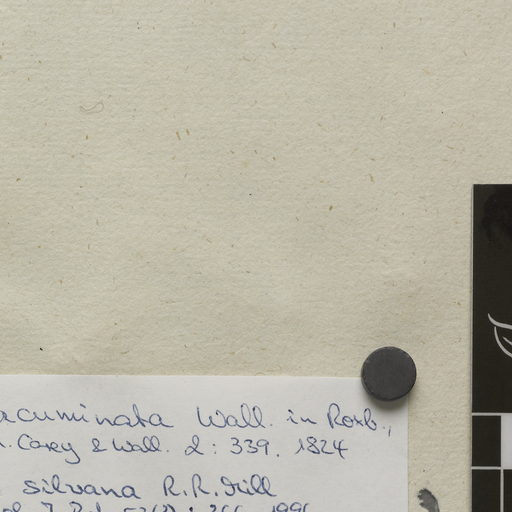 acuminata Wall. in Roxb.,
Carey & Wall. 2: 339. 1824
silvana R.R. Mill